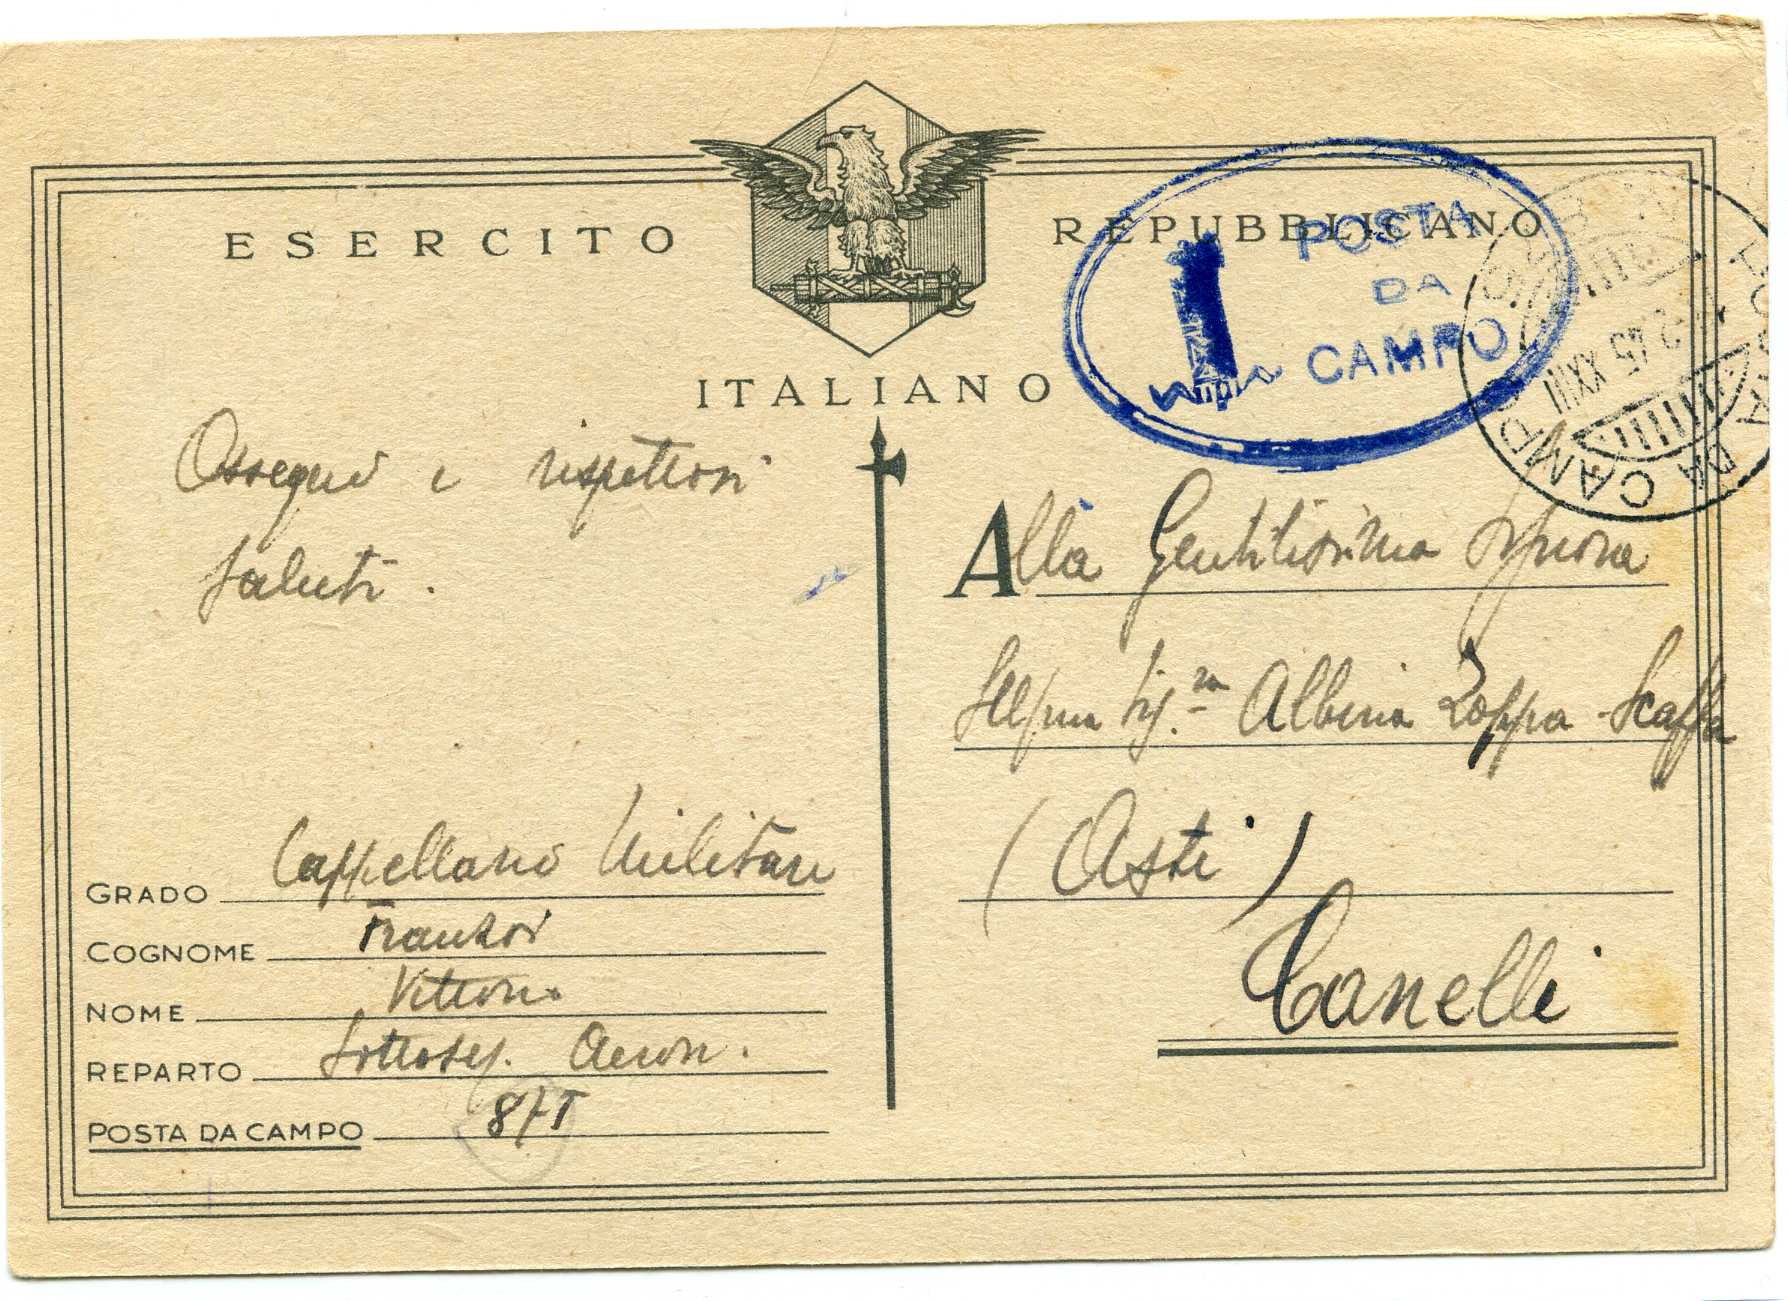 ESERCITO REPUBBLICANO
ITALIANO
POSTA
DA
CAMPO
POSTA DA CAMPO
2.45 XXIII
Ossequi e rispettosi
saluti.
Alla Gentilissima Signora
Sig.ra Albina Zoppa-Scaffa
(Asti)
Canelli
GRADO Cappellano Militare
COGNOME Franzoi
NOME Vittorio
REPARTO Aeron.
POSTA DA CAMPO 87T